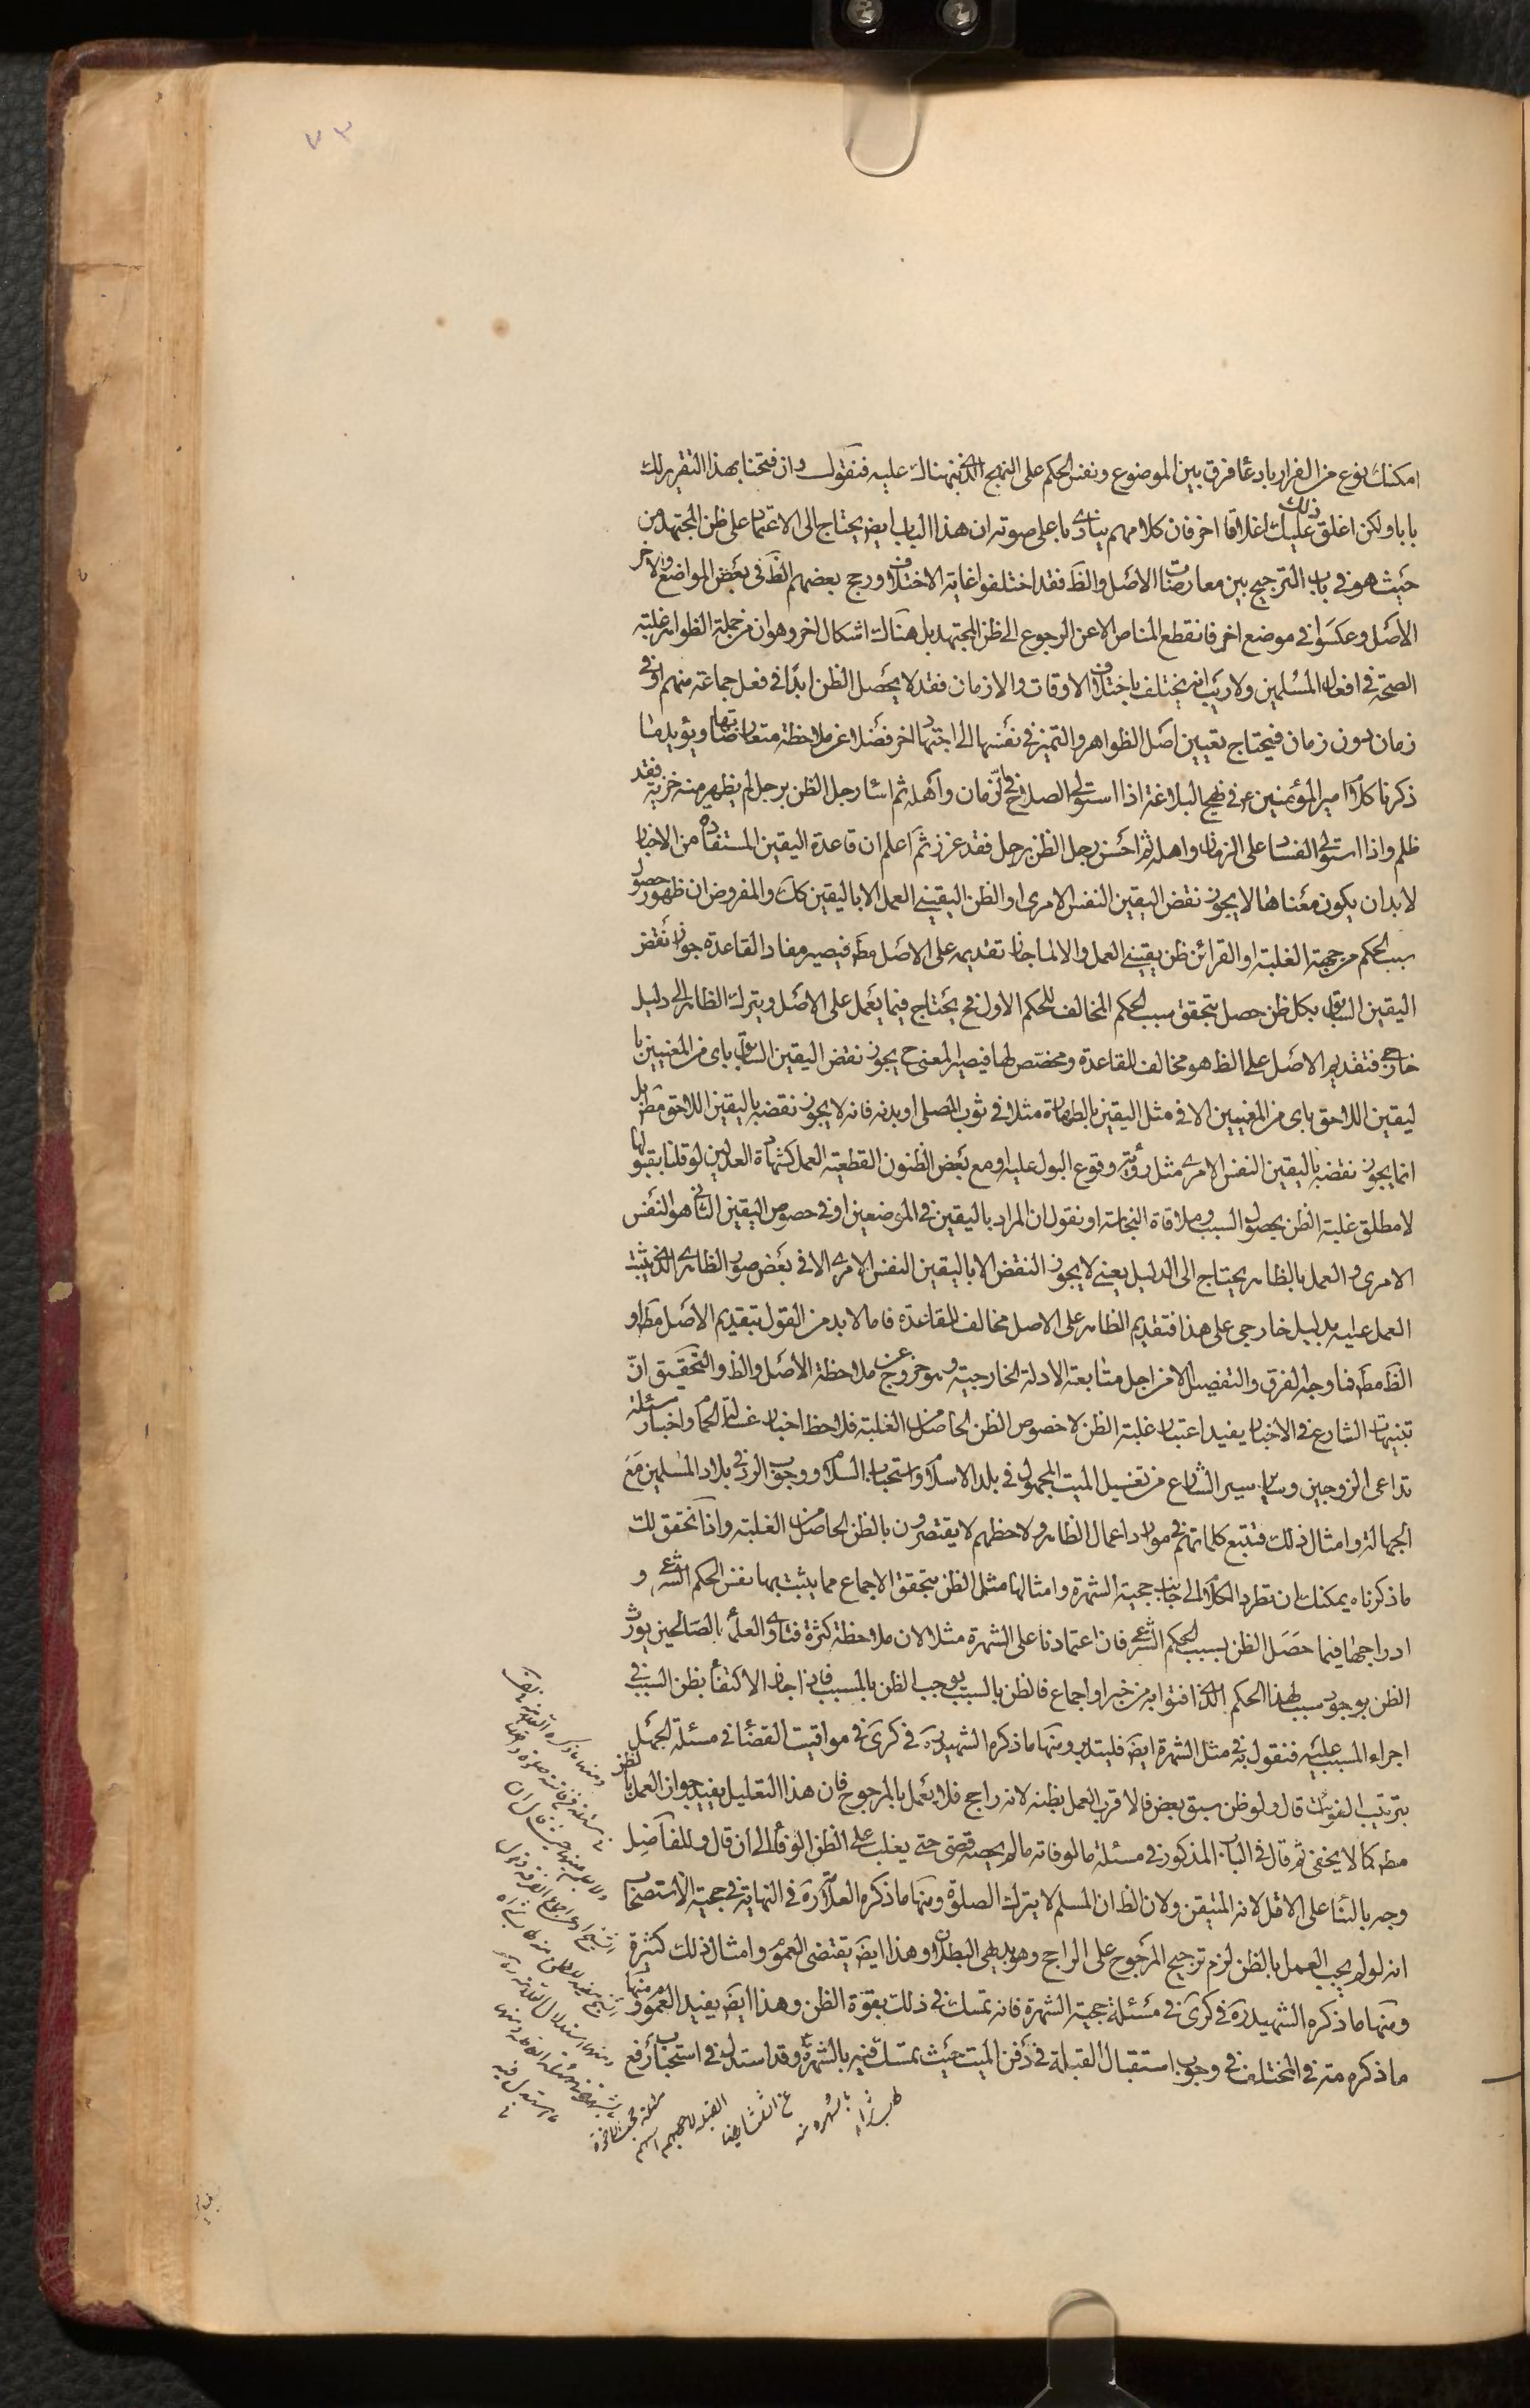 ٧٣
امكنك نوع من الفرار بادعا فرق بين الموضوع ونفس الحكم على النهج الذي نبهناك عليه فنقول وان فتحنا بهذا التقرير لك
بابا ولكن اغلق ذلك عليك اغلاقا اخر فان كلامهم ينادي باعلى صوته ان هذا الباب ايض يحتاج الى الاعتماد على ظن المجتهدين
حيث هو في باب الترجيح بين معارضات الاصل والظ فقد اختلفوا غاية الاختلاف ورجح بعضهم الظ في بعض المواضع والاخر
الاصل وعكسوا في موضع اخر فانقطع المناص الا عن الرجوع الى ظن المجتهد بل هناك اشكال اخر وهو ان من جملة الظواهر غلبة
الصحة في افعال المسلمين ولا ريب انه يختلف باختلاف الاوقات والازمان فقد لا يحصل الظن ابدا في فعل جماعة منهم او في
زمان دون زمان فيحتاج تعيين اصل الظواهر والتميز في نفسها الى اجتهاد اخر فضلا عن ملاحظة متعارضاتها ويؤيد ما
ذكرنا كلام امير المؤمنين ع في نهج البلاغة اذا استولى الصلاح على الزمان واهله ثم اساء رجل الظن برجل لم يظهر منه خزية فقد
ظلم واذا استولى الفساد على الزمان واهله ثم احسن رجل الظن برجل فقد غرر ثم اعلم ان قاعدة اليقين المستفادة من الاخبار
لا بد ان يكون معناها لا يجوز نقض اليقين النفس الامرى او الظن اليقيني العمل الا باليقين كك والمفروض ان ظهور حصول
سبب الحكم من جهة الغلبة او القرائن ظن يقيني العمل والا لما جاز تقديمه على الاصل مط فيصير مفاد القاعدة جواز نقض
اليقين السابق بكل ظن حصل بتحقق سبب الحكم المخالف للحكم الاول فح يحتاج فيما يعمل على الاصل ويترك الظاهر الى دليل
خارجي فتقديم الاصل على الظ هو مخالف للقاعدة ومخصص لها فيصير المعنى ح يجوز نقض اليقين السابق باى من المعنيين با
ليقين اللاحق باى من المعنيين الا في مثل اليقين بالطهارة مثلا في ثوب المصلى او بدنه فانه لا يجوز نقضه باليقين اللاحق مط بل
انما يجوز نقضه باليقين النفس الامرى مثل رؤية وقوع البول عليه او مع بعض الظنون القطعية العمل كشهادة العدلين لو قلنا بقبولها
لا مطلق غلبة الظن بحصول السبب وملاقاة النجاسة او نقول ان المراد باليقين في الموضعين او في خصوص اليقين الثاني هو النفس
الامرى والعمل بالظاهر يحتاج الى الدليل يعني لا يجوز النقض الا باليقين النفس الامرى الا في بعض صور الظاهر الذي يثبت
العمل عليه بدليل خارجي على هذا فتقديم الظاهر على الاصل مخالف للقاعدة فاما لا بد من القول بتقديم الاصل مط او
الظ مط فما وجه الفرق والتفصيل الا من اجل متابعة الادلة الخارجية وهو خروج عن ملاحظة الاصل والظ والتحقيق ان
تنبيهات الشارع في الاخبار يفيد اعتبار غلبة الظن لا خصوص الظن الحاصل من الغلبة فلاحظ اخبار غسالة الحمام واخبار مسئلة
تداعى الزوجين وساير سير الشارع من تغسيل الميت المجهول في بلد الاسلام واستحباب السلام ووجوب الرد في بلاد المسلمين مع
الجهالة وامثال ذلك فتتبع كلماتهم في موارد اعمال الظاهر ولاحظهم لا يقتصرون بالظن الحاصل من الغلبة واذا تحقق لك
ما ذكرناه يمكنك ان تطرد الكلام الى جانب حجية الشهرة وامثالها مثل الظن بتحقق الاجماع مما يثبت بها نفس الحكم الشرعي و
ادراجها فيما حصل الظن بسبب الحكم الشرعي فان اعتمادنا على الشهرة مثلا لان ملاحظة كثرة فتاوى العلماء الصالحين يورث
الظن بوجود سبب لهذا الحكم الذي افتوا به من خبر او اجماع فالظن بالسبب يوجب الظن بالمسبب فاذا جاز الاكتفاء بظن السبب في
اجراء المسبب عليه فنقول به في مثل الشهرة ايض فليتدبر ومنها ما ذكره الشهيد ره في كرى في مواقيت القضا في مسئلة الجهل
بترتيب الفوائت قال ولو ظن سبق بعض فالاقرب العمل بظنه لانه راجح فلا يعمل بالمرجوح فان هذا التعليل يفيد جواز العمل بالظن
مط كما لا يخفى ثم قال في الباب المذكور في مسئلة ما لو فاته ما لم يحصه قضى حتى يغلب على الظن الوفاء الى ان قال وللفاضل
وجه بالبناء على الاقل لانه المتيقن ولان الظ ان المسلم لا يترك الصلوة ومنها ما ذكره العلامة ره في النهاية في حجية الاستصحاب
انه لو لم يجب العمل بالظن لزم ترجيح المرجوح على الراجح وهو بديهي البطلان وهذا ايض يقتضى العموم وامثال ذلك كثيرة
ومنها ما ذكره الشهيد ره في كرى في مسئلة حجية الشهرة فانه تمسك في ذلك بقوة الظن وهذا ايض يفيد العموم ومنها
ما ذكره مة في المختلف في وجوب استقبال القبلة في دفن الميت حيث تمسك فيه بالشهرة وقد استدل في استحباب رفع